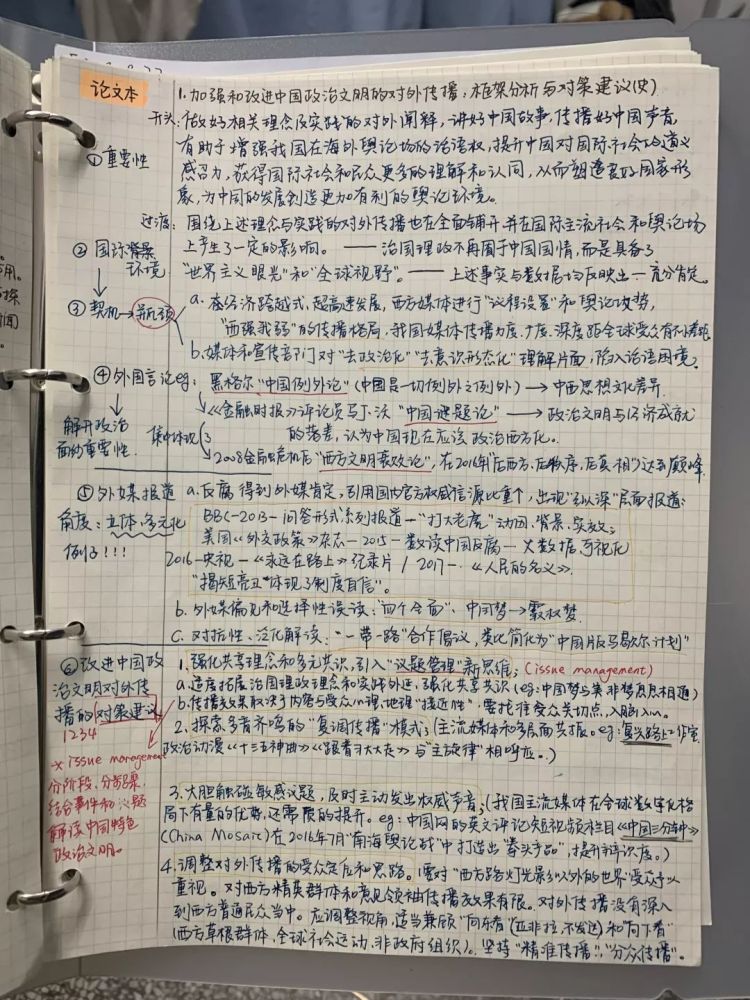 论文本
1.加强和改进中国政治文明的对外传播:框架分析与对策建议(史)
开头:做好相关理念及实践的对外阐释,讲好中国故事,传播好中国声音,
①重要性
有助于增强我国在海外舆论场的话语权,提升中国对国际社会的道义
感召力,获得国际社会和民众更多的理解和认同,从而塑造良好国家形
象,为中国的发展创造更加有利的舆论环境。
过渡:围绕上述理念与实践的对外传播也在全面铺开并在国际主流社会和舆论场
②国际背景
环境
上产生了一定的影响。——治国理政不再囿于中国国情,而是具备了
"世界主义眼光"和"全球视野"。——上述事实与数据均反映出—充分肯定。
③契机→瓶颈
a.在经济跨越式、超高速发展,西方媒体进行"议程设置"和舆论攻势,
"西强我弱"的传播格局,我国媒体传播力度、广度、深度距全球受众有不小差距
b.媒体和宣传部门对"去政治化""去意识形态化"理解片面,陷入话语困境。
④外国言论eg:
黑格尔"中国例外论"(中国是一切例外之例外)→中西思想文化差异.
《金融时报》评论员马丁·沃"中国谜题论"→政治文明与经济成就
解开政治
面纱重要性.
集中体现
的落差,认为中国现在应该政治西方化。
2008金融危机后"西方文明衰败论",在2016年"后西方、后秩序、后真相"达到巅峰.
⑤外媒报道
a.反腐得到外媒肯定,引用国内官方权威信源比重个,出现"纵深"层面报道:
角度:立体、多元化
例子!!!
BBC-2013-问答形式系列报道→"打大老虎"动因、背景、实效;
美国《外交政策》杂志-2015-数读中国反腐—大数据、可视化
2016-央视-《永远在路上》纪录片/2017-.《人民的名义》.
"揭短亮丑"体现了制度自信"。
b.外媒偏见和选择性误读:"四个全面"、中国梦→霸权梦.
c.对抗性、泛化解读:"一带一路"合作倡议,类比简化为"中国版马歇尔计划"
⑥改进中国政
治文明对外传
播的对策建议
1234
1.强化共享理念和多元共识,引入"议题管理"新思维;(issue management)
a.适度拓展治国理政理念和实践外延,强化共享共识(eg:中国梦与美非梦息息相通)
b.传播效果取决于内容与受众心理、地理"接近性",需找准受众关切点,入脑入心。
2.探索多音齐鸣的"复调传播"模式;(主流媒体和多层面共振。eg:复兴路上工作室
政治动漫《十三五神曲》《跟着习大大走》与"主旋律"相呼应。)
*issue management
分阶段、分步骤,
结合事件和议题
解读中国特色
政治文明。
3.大胆触碰敏感议题,及时主动发出权威声音;(我国主流媒体在全球数字化格
局下有量的优势,还需质的提升。eg:中国网的英文评论短视频栏目《中国三分钟》
(China Mosaic)在2016年7月"南海舆论战"中打造出"拳头产品",提升辨识度。)
4.调整对外传播的受众定位和思路。(需对"西方路灯光影"以外的世界受众予以
重视。对西方精英群体和意见领袖传播效果有限。对外传播没有深入
到西方普通民众当中。应调整视角,适当兼顾"向东看"(亚非拉、不发达)和"向下看"
(西方草根群体、全球社会运动、非政府组织)。坚持"精准传播"、"分众传播"。